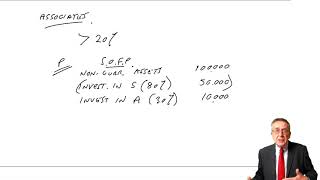 ASSOCIATES.
> 20%
P S.O.F.P.
NON-CURR. ASSETS 100000
(INVEST. IN S (80%) 50.000)
INVEST IN A (30%) 10000